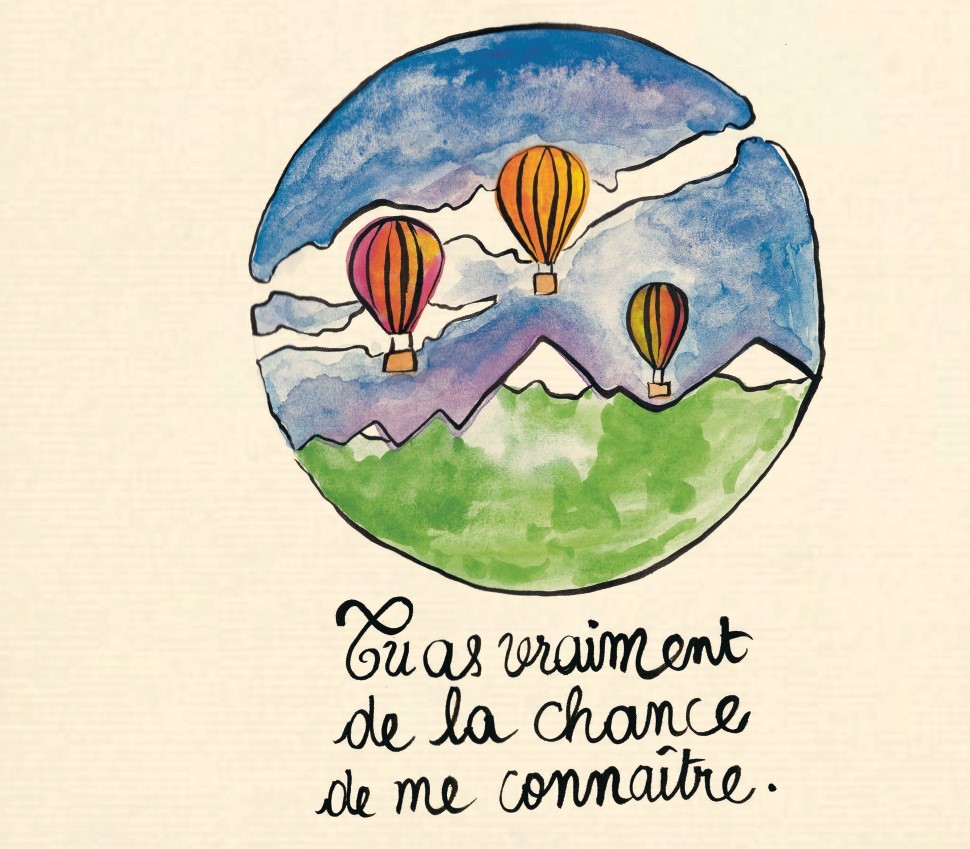 Tu as vraiment
de la chance
de me connaître.